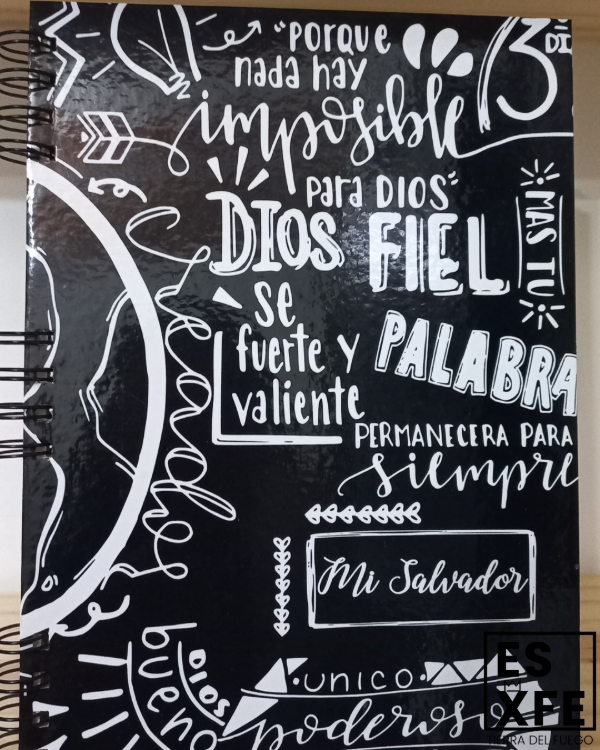 "PORQUE
nada hay
imposible
para DIOS"
3
DI
DIOS
FIEL
MAS TU
se
fuerte y
valiente
PALABRA
PERMANECERA PARA
siempre
Mi Salvador
DIOS
bueno
UNICO
poderoso
ES
XFE
TIERRA DEL FUEGO